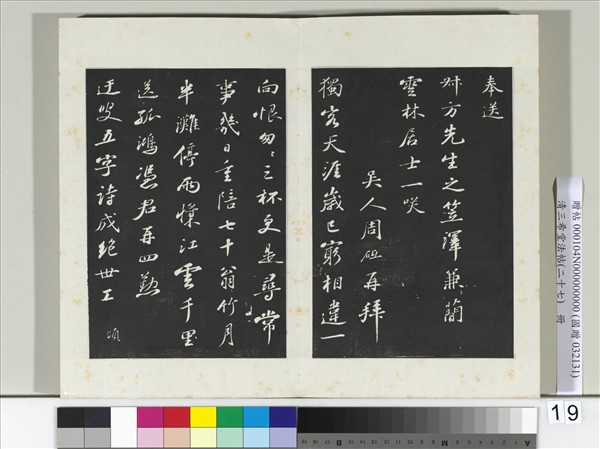 奉送
叔方先生之笠澤兼簡
雲林居士一咲
吳人周砥再拜
獨客天涯歲已窮相違一
向恨匆〻三杯更是尋常
事幾日重陪七十翁竹月
半灘停雨江雲千里
送孤鴻憑君再四懃
迂叟五字詩成絕世工 頃
贈帖 000104N000000000 (國贈 032131)
清三希堂法帖(二十七) 冊
19